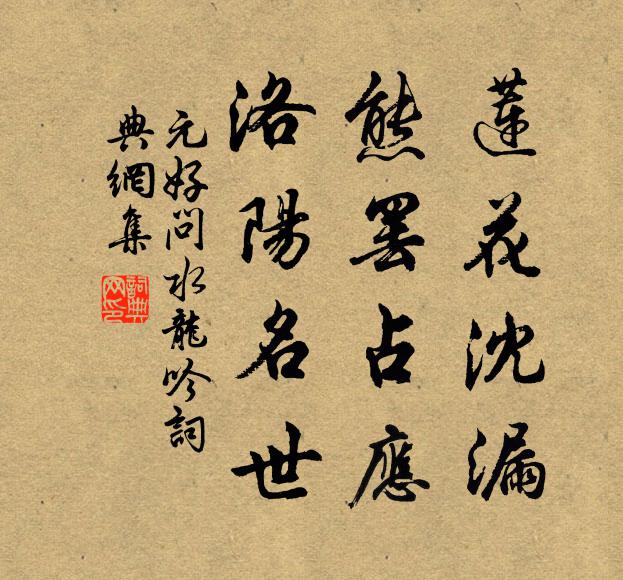 蓮花沈漏
熊羆占應
洛陽名世
元好問水龍吟詞
典網集
詞典網印